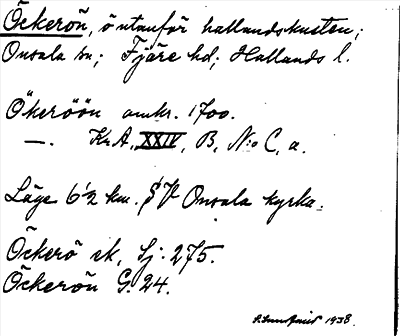 Öckerön, ö utanför hallandskusten;
Onsala sn; Fjäre hd; Hallands l.
Ökeröön omkr. 1700.
—. Kr.A. XXIV, B, N:o C, a.
Läge 6½ km. SV Onsala kyrka.
Öckerö ek, Sj. 275.
Öckerön G. 24.
1938.